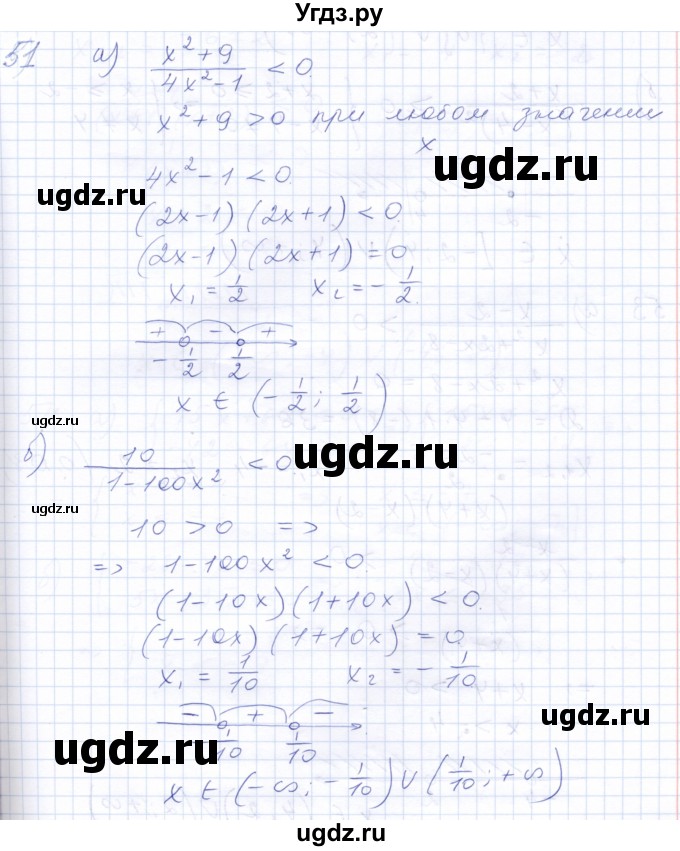 Угдз.ру
51 а) (x²+9)/(4x²-1) < 0.
x²+9 > 0 при любом значении
x
ugdz.ru
4x²-1 < 0.
ugdz.ru
(2x-1)(2x+1) < 0.
ugdz.ru
(2x-1)(2x+1) = 0
x₁ = 1/2 x₂ = -1/2.
+ - +
-1/2 1/2
x ∈ (-1/2; 1/2)
ugdz.ru
б) 10/(1-100x²) < 0.
ugdz.ru
ugdz.ru
10 > 0 =>
=> 1-100x² < 0.
(1-10x)(1+10x) < 0.
(1-10x)(1+10x) = 0.
x₁ = 1/10 x₂ = -1/10
- + -
1/10 1/10
ugdz.ru
ugdz.ru
x ∈ (-∞; -1/10) ∪ (1/10; +∞)
ugdz.ru